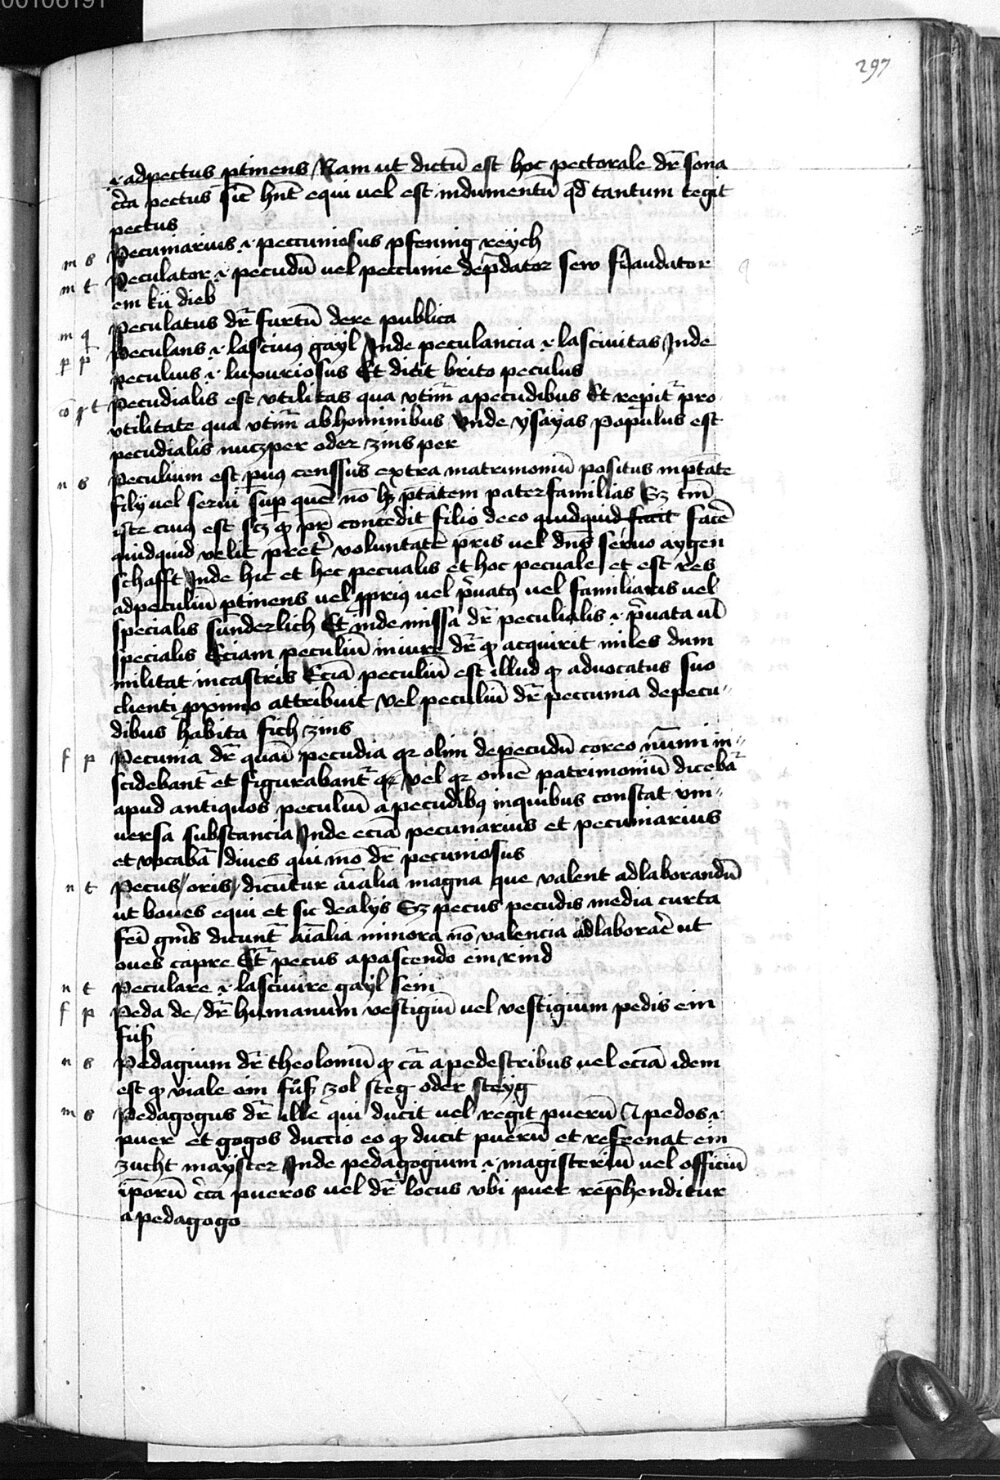 00108191
297
.i. adpectus ptinens Nam ut dictū est hoc pectorale dr̄ sona
cc̄a pectus sic̄ hn̄t equi vel est indumentū qd̄ tantum tegit
pectus
m s Pecuniarius .i. peccuniosus pfennig reych
m t Peculator .i. pecudū uel peccunie dep̄dator sew fraudator
em kü dieb
m q Peculatus dr̄ furtū dere publica
p p Peculans .i. lasciuus gayl Inde peculancia .i. lasciuitas Inde
peculius .i. luxuriosus Et dicit brito peculus
cō p t Pecudialis est vtilitas qua vtim̄ apecudibus Et repit̄ pro
vtilitate qua vtim̄ abhominibus Vnde ysayas Populus est
pecudialis nuczper oder zins per
n s Peculium est puus censsus extra matrimoniū positus inptāte
filij uel serui sup quē nō hȝ ptātem paterfamilias Sȝ tm̄
iste cuius est scȝ qd̄ pr̄ concedit filio deeo quidquid facit facē
quidquid velit pretr̄ voluntatē pr̄is uel dn̄s seruo aygen
schafft Inde hic et hec pecualis et hoc pecuale et est res
adpeculiū ptinens uel pprius vel pr̄uatus vel familiaris vel
specialis sunderlich Et inde missa dr̄ peculialis .i. pr̄uata ul̄
specialis Eciam peculiū iniure dr̄ qd̄ acquirit miles dum
militat incastris Eciā peculiū est illud qd̄ aduocatus suo
clienti pximo attribuit Vel peculiū dr̄ peccunia depecu-
dibus habita sich zins
f p Pecunia dr̄ quasi pecudia qr olim depecudū coreo nūmi in-
scidebant̄ et figurabant̄ qr vel qr omē patrimoniū dicebat̄
apud antiquos peculiū apecudibus inquibus constat vni-
uersa substancia Inde eciā pecunarius et pecuniarius
et vocabā diues qui mō dr̄ pecuniosus
n t Pecus oris dicuntur aīalia magna que valent adlaborandū
ut boues equi et sic dealijs Sȝ pecus pecudis media curta
fei gn̄is dicunt̄ aīalia minora nō valencia adlaborarē ut
oues capre Et̄ pecus apascendo ein rind
n t Peculare .i. lasciuire gayl sein
f p Peda de dr̄ humanum vestigiū uel vestigium pedis ein
fuß
n s Pedagium dr̄ theolomū qd̄ cā apedestribus uel eciā idem
est qd̄ viale em fuß zol steg oder steyg
m s Pedagogus dr̄ ille qui ducit uel regit puerū a pedos .i.
puer et gogos duccio eo qd̄ ducit puerū et refrenat ein
zucht mayster Inde pedagogium .i. magisteriū uel officiū
ipōrū cc̄a pueros uel dr̄ locus vbi puer rep̄henditur
a pedagogo